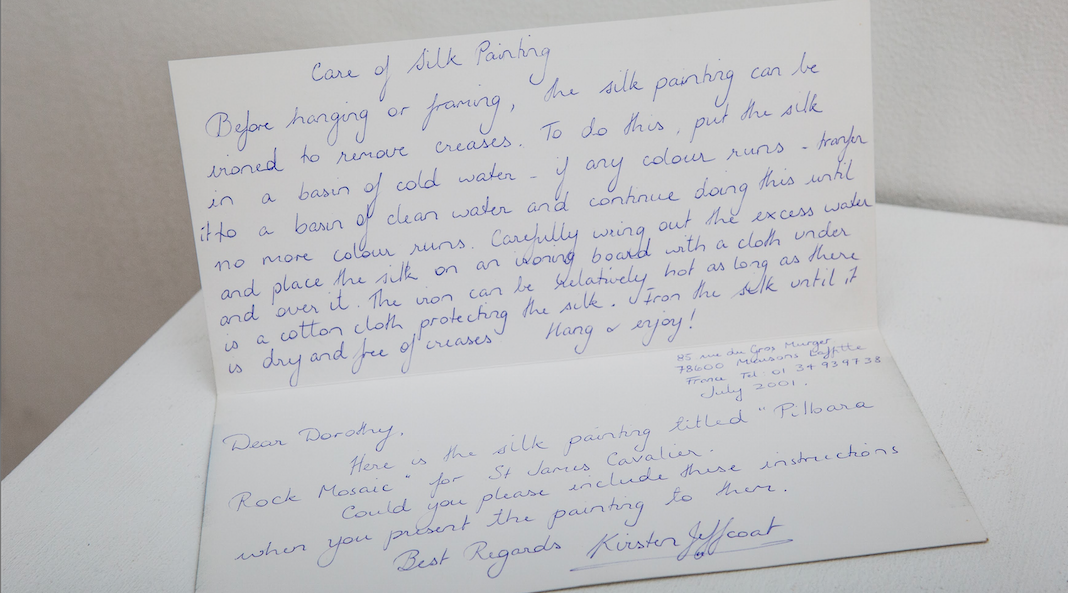 Care of Silk Painting
Before hanging or framing, the silk painting can be
ironed to remove creases. To do this, put the silk
in a basin of cold water - if any colour runs - tranfer
it to a basin of clean water and continue doing this until
no more colour runs. Carefully wring out the excess water
and place the silk on an ironing board with a cloth under
and over it. The iron can be relatively hot as long as there
is a cotton cloth protecting the silk. Iron the silk until it
is dry and free of creases Hang & enjoy!
85 rue du Gros Murger
78600 Maisons Laffitte
France Tel: 01 34 93 97 38
July 2001.
Dear Dorothy,
Here is the silk painting titled "Pilbara
Rock Mosaic" for St James Cavalier.
Could you please include these instructions
when you present the painting to them.
Best Regards Kirsten Jeffcoat